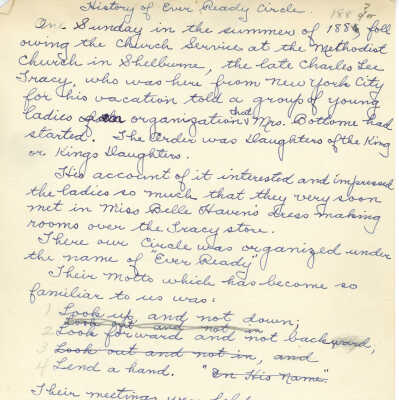 History of Ever Ready Circle. 188? or
One Sunday in the summer of 188 foll
owing the Church Service at the Methodist
Church in Shelburne, the late Charles Lee
Tracy, who was here from New York City
for his vacation told a group of young
ladies of an organization that Mrs. Bottome had
started. The order was Daughters of the King
or Kings Daughters.
His account of it interested and impressed
the ladies so much that they very soon
met in Miss Belle Haven's dress making
rooms over the Tracy store.
There our Circle was organized under
the name of "Ever Ready"
Their Motto which has become so
familiar to us was:
1 Look up and not down;
Look out and not in
2 Look forward and not backward,
3 Look out and not in, and
4 Lend a hand. "In His Name".
Their meetings were held